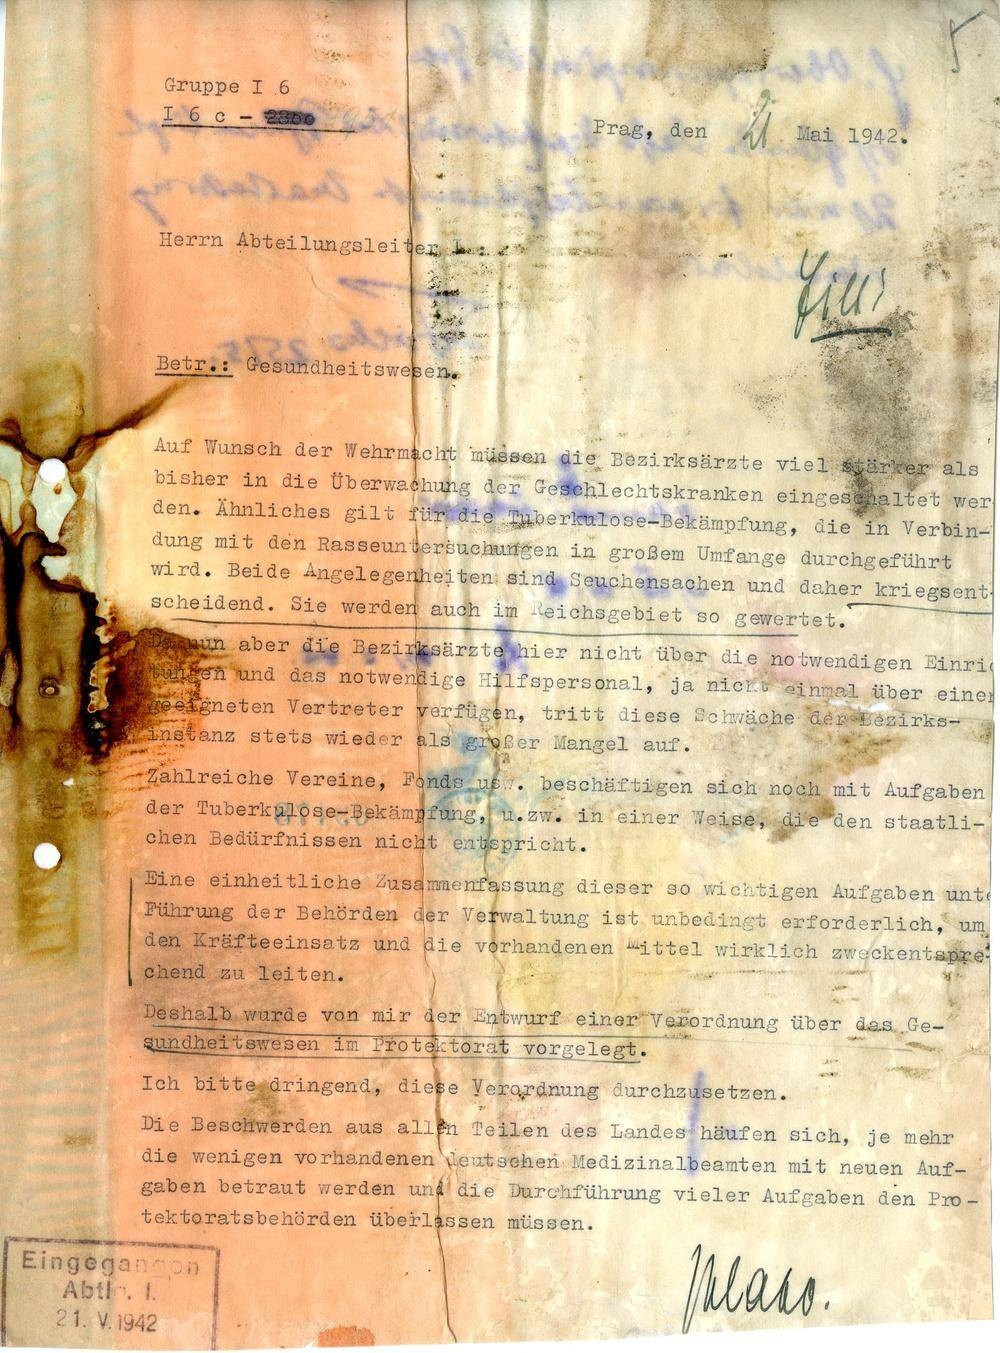 Gruppe I 6
I 6 c -
Prag, den 21 Mai 1942.
Herrn Abteilungsleiter I.
Betr.: Gesundheitswesen.
Auf Wunsch der Wehrmacht müssen die Bezirksärzte viel stärker als
bisher in die Überwachung der Geschlechtskranken eingeschaltet wer
den. Ähnliches gilt für die Tuberkulose-Bekämpfung, die in Verbin-
dung mit den Rasseuntersuchungen in großem Umfange durchgeführt
wird. Beide Angelegenheiten sind Seuchensachen und daher kriegsent-
scheidend. Sie werden auch im Reichsgebiet so gewertet.
Da nun aber die Bezirksärzte hier nicht über die notwendigen Einric
tungen und das notwendige Hilfspersonal, ja nicht einmal über einen
geeigneten Vertreter verfügen, tritt diese Schwäche der Bezirks-
instanz stets wieder als großer Mangel auf.
Zahlreiche Vereine, Fonds usw. beschäftigen sich noch mit Aufgaben
der Tuberkulose-Bekämpfung, u.zw. in einer Weise, die den staatli-
chen Bedürfnissen nicht entspricht.
Eine einheitliche Zusammenfassung dieser so wichtigen Aufgaben unte
Führung der Behörden der Verwaltung ist unbedingt erforderlich, um
den Kräfteeinsatz und die vorhandenen Mittel wirklich zweckentspre-
chend zu leiten.
Deshalb wurde von mir der Entwurf einer Verordnung über das Ge-
sundheitswesen im Protektorat vorgelegt.
Ich bitte dringend, diese Verordnung durchzusetzen.
Die Beschwerden aus allen Teilen des Landes häufen sich, je mehr
die wenigen vorhandenen deutschen Medizinalbeamten mit neuen Auf-
gaben betraut werden und die Durchführung vieler Aufgaben den Pro-
tektoratsbehörden überlassen müssen.
Eingegangen
Abtlg. I.
21. V. 1942